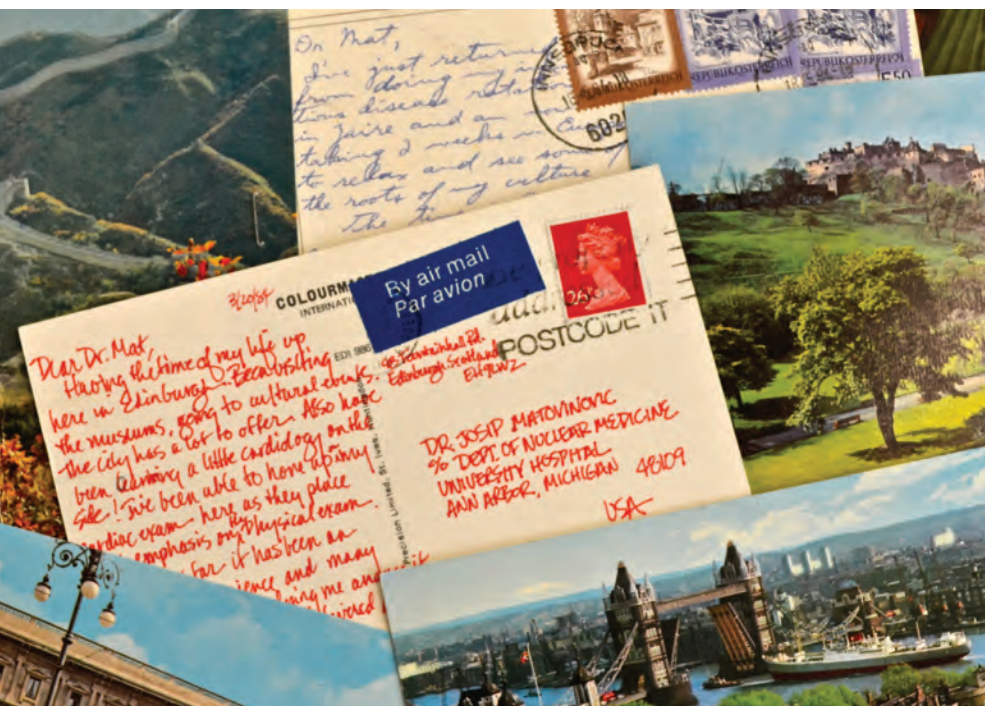 Dr Mat,
I've just returned
from doing an in
tious disease rotation
in Zaire and am now
taking 2 weeks in Eu
to relax and see some
the roots of my culture
The
REPUBLIK ÖSTERREICH
REPUBLIK ÖSTERREICH
5.50
602
3/20/84
COLOURM
INTERNATI
By air mail
Par avion
POSTCODE IT
Dear Dr. Mat,
Having the time of my life up
here in Edinburgh. Been visiting
the museums, going to cultural events.
The city has a lot to offer. Also have
been learning a little cardiology on the
side! I've been able to hone up my
cardiac exam here as they place
emphasis on physical exam.
far it has been an
ience and many
Fountainhall Rd.
Edinburgh Scotland
EH9
DR. JOSIP MATOVINOVIC
c/o DEPT. OF NUCLEAR MEDICINE
UNIVERSITY HOSPITAL
ANN ARBOR, MICHIGAN 48109
USA
Precision Limited, St. Ives,